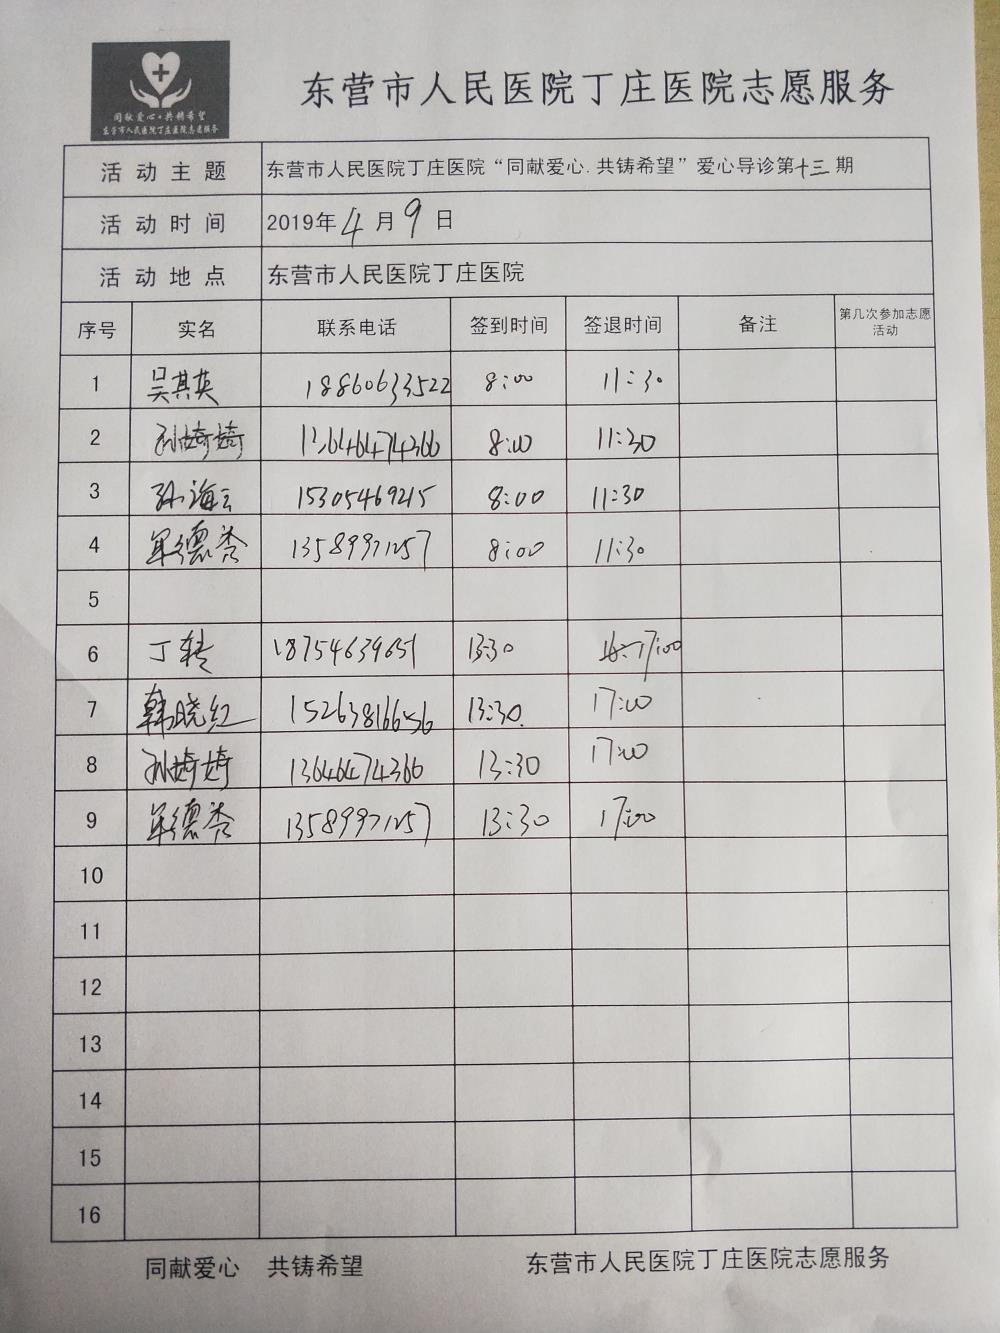 同献爱心·共铸希望
东营市人民医院丁庄医院志愿服务
东营市人民医院丁庄医院志愿服务
活动主题 东营市人民医院丁庄医院“同献爱心.共铸希望”爱心导诊第十三期
活动时间 2019年4月9日
活动地点 东营市人民医院丁庄医院
序号 实名 联系电话 签到时间 签退时间 备注 第几次参加志愿
活动
1 吴其英 18860633522 8:00 11:30
2 孙婷婷 13646474366 8:00 11:30
3 孙海云 15305469215 8:00 11:30
4 单德秀 13589971257 8:00 11:30
5
6 丁转 18754639651 13:30 17:00
7 韩晓红 15263816656 13:30 17:00
8 孙婷婷 13646474366 13:30 17:00
9 单德秀 13589971257 13:30 17:00
10
11
12
13
14
15
16
同献爱心 共铸希望 东营市人民医院丁庄医院志愿服务